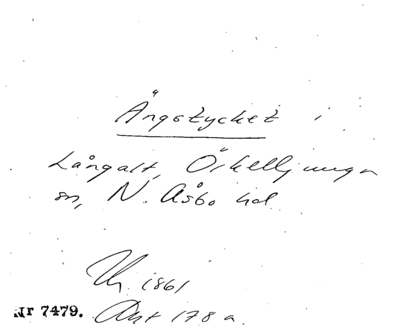 Ängstycket i
Långalt, Örkelljunga
sn, N. Åsbo hd
Uh. 1861
Nr 7479. Aut 178 a.